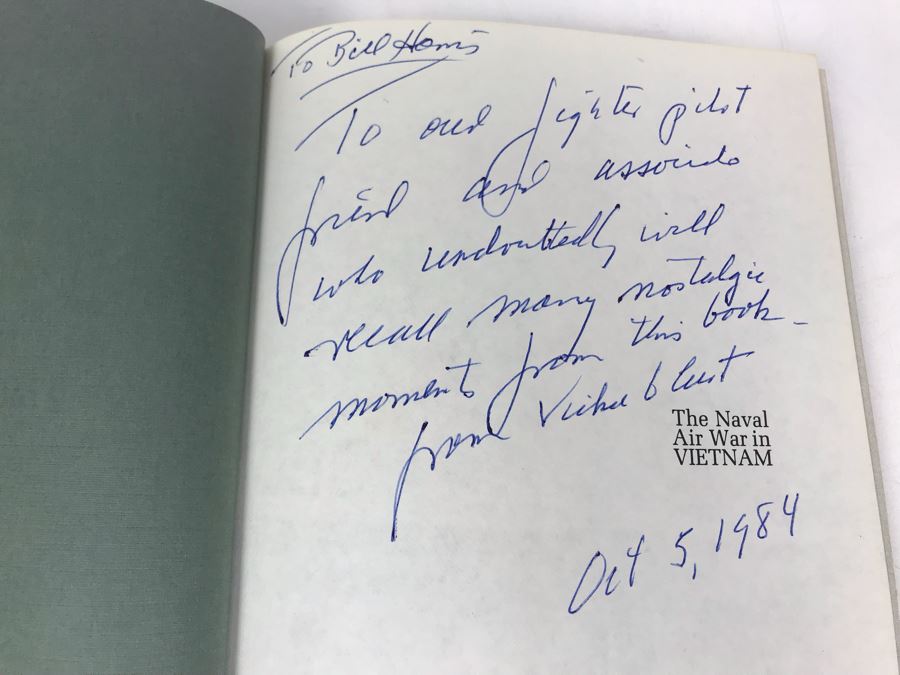 To Bill Harris
To our fighter pilot
friend and associate
who undoubtedly will
recall many nostalgic
moments from this book -
from
The Naval
Air War in
VIETNAM
Oct 5, 1984